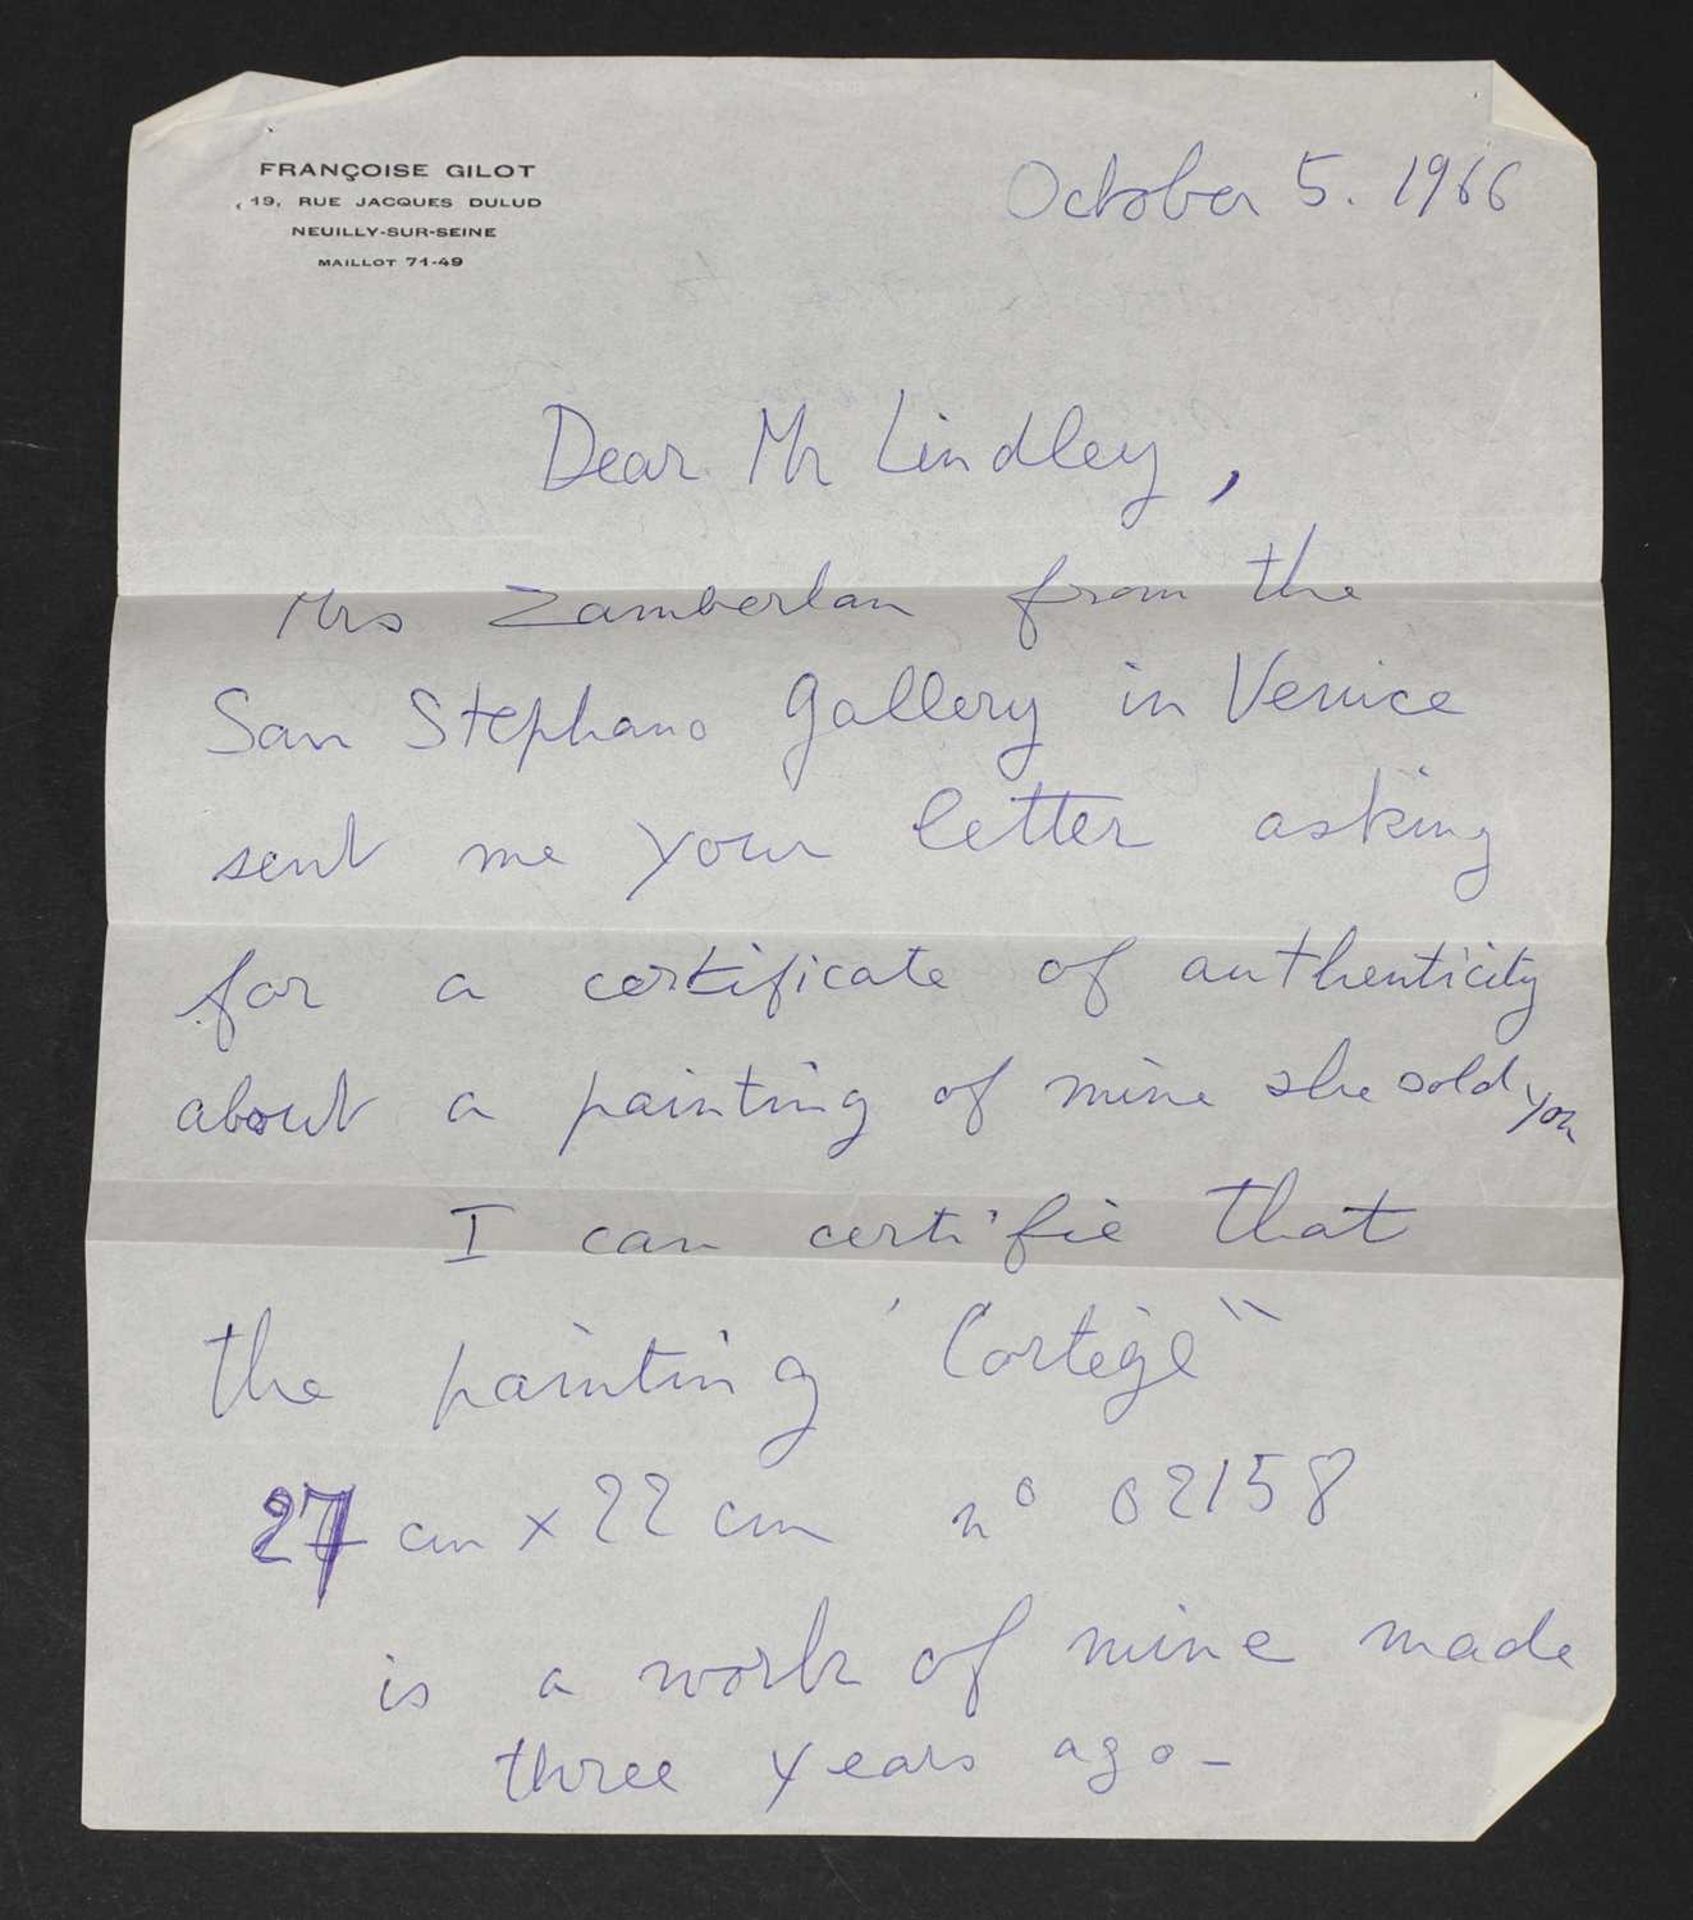 FRANÇOISE GILOT
19, RUE JACQUES DULUD
NEUILLY-SUR-SEINE
MAILLOT 71-49
October 5. 1966
Dear Mr Lindley,
Mrs Zamberlan from the
San Stephano gallery in Venice
sent me your letter asking
for a certificate of authenticity
about a painting of mine she sold you
I can certifie that
the painting "Cortège"
27 cm x 22 cm n° 02158
is a work of mine made
three years ago-